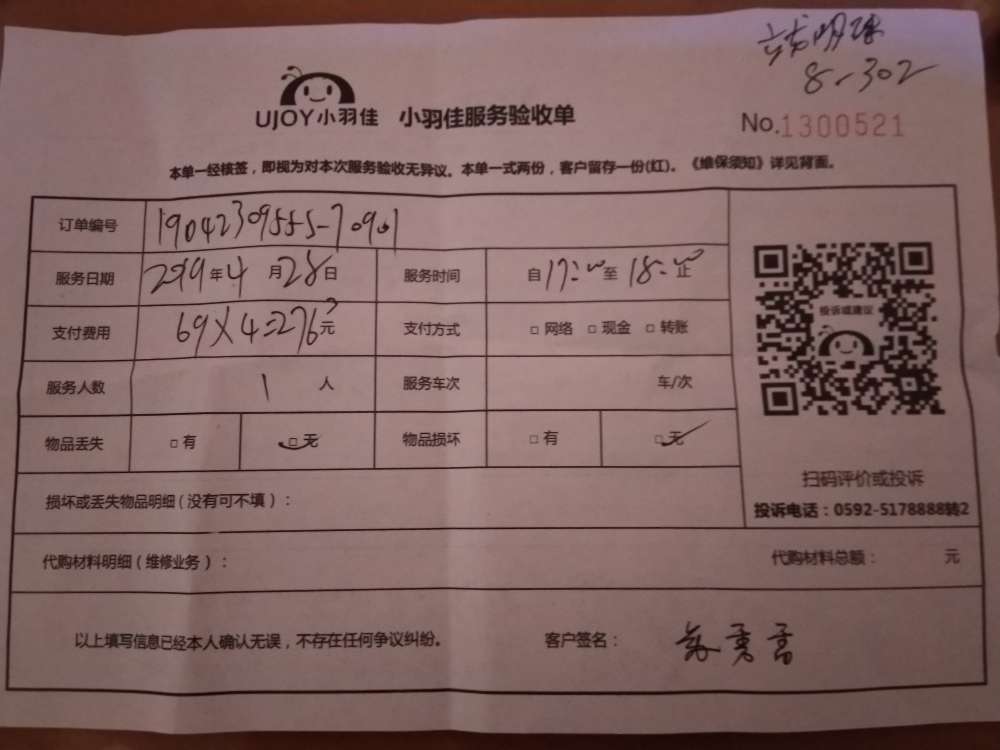 8-302
UJOY小羽佳 小羽佳服务验收单
No.1300521
本单一经核签，即视为对本次服务验收无异议。本单一式两份，客户留存一份(红)。《维保须知》详见背面。
订单编号
服务日期 2019年4月28日 服务时间 自17:00至18:00止
支付费用 69×4=276元 支付方式 □网络 □现金 □转账
服务人数 1人 服务车次 车/次
物品丢失 □有 □无 物品损坏 □有 □无
投诉或建议
扫码评价或投诉
投诉电话：0592-5178888转2
损坏或丢失物品明细（没有可不填）：
代购材料明细（维修业务）： 代购材料总额： 元
以上填写信息已经本人确认无误，不存在任何争议纠纷。 客户签名：